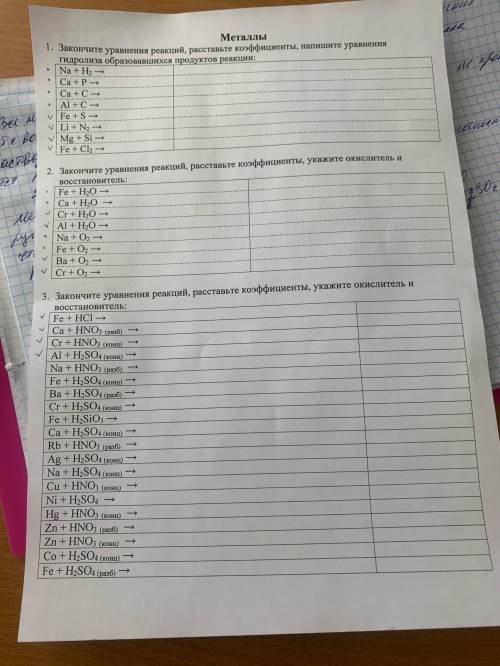 Металлы
1. Закончите уравнения реакций, расставьте коэффициенты, напишите уравнения
гидролиза образовавшихся продуктов реакции:
Na + H₂ →
Ca + P →
Ca + C →
Al + C →
Fe + S →
Li + N₂ →
Mg + Si →
Fe + Cl₂ →
2. Закончите уравнения реакций, расставьте коэффициенты, укажите окислитель и
восстановитель:
Fe + H₂O →
Ca + H₂O →
Cr + H₂O →
Al + H₂O →
Na + O₂ →
Fe + O₂ →
Ba + O₂ →
Cr + O₂ →
3. Закончите уравнения реакций, расставьте коэффициенты, укажите окислитель и
восстановитель:
Fe + HCl →
Ca + HNO₃ (разб) →
Cr + HNO₃ (конц) →
Al + H₂SO₄ (конц) →
Na + HNO₃ (разб) →
Fe + H₂SO₄ (конц) →
Ba + H₂SO₄ (разб) →
Cr + H₂SO₄ (конц) →
Fe + H₂SiO₃ →
Ca + H₂SO₄ (конц) →
Rb + HNO₃ (разб) →
Ag + H₂SO₄ (конц) →
Na + H₂SO₄ (конц) →
Cu + HNO₃ (конц) →
Ni + H₂SO₄ →
Hg + HNO₃ (конц) →
Zn + HNO₃ (разб) →
Zn + HNO₃ (конц) →
Co + H₂SO₄ (конц) →
Fe + H₂SO₄ (разб) →